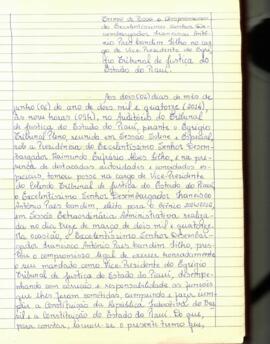 Termo de Posse e Compromisso
do Excelentíssimo Senhor De-
sembargador Francisco Antô-
nio Paes Landim Filho no car-
go de Vice-Presidente do Egré-
gio Tribunal de Justiça do
Estado do Piauí.
Aos dois (02) dias do mês de
junho (06) do ano de dois mil e quatorze (2014),
às nove horas (09h), no Auditório do Tribunal
de Justiça do Estado do Piauí, perante o Egrégio
Tribunal Pleno, reunido em Sessão Solene e Especial,
sob a Presidência do Excelentíssimo Senhor Desem-
bargador Raimundo Eufrásio Alves Filho, e na pre-
sença de destacadas autoridades e convidados es-
peciais, tomou posse no cargo de Vice-Presidente
do Egrégio Tribunal de Justiça do Estado do Piauí,
o Excelentíssimo Senhor Desembargador Francisco
Antônio Paes Landim, eleito para o biênio 2014/2016,
em Sessão Extraordinária Administrativa realiza-
da no dia de março de dois mil e quatorze.
Na ocasião, o Excelentíssimo Senhor Desembar-
gador Francisco Antônio Paes Landim Filho, pres-
tou o compromisso legal de exercer honradamente
o seu mandato como Vice-Presidente do Egrégio
Tribunal de Justiça do Estado do Piauí, desempe-
nhando com correção e responsabilidade as funções
que lhes foram cometidas, cumprindo e fazer cum-
prir a Constituição da República Federativa do Bra-
sil e a Constituição do Estado do Piauí. Do que,
para constar, lavrou-se o presente termo que,